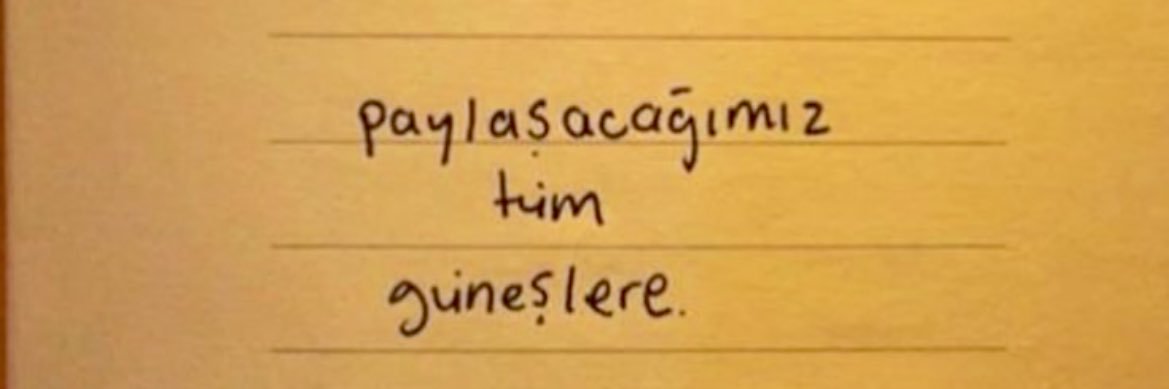 paylaşacağımız
tüm
güneşlere.